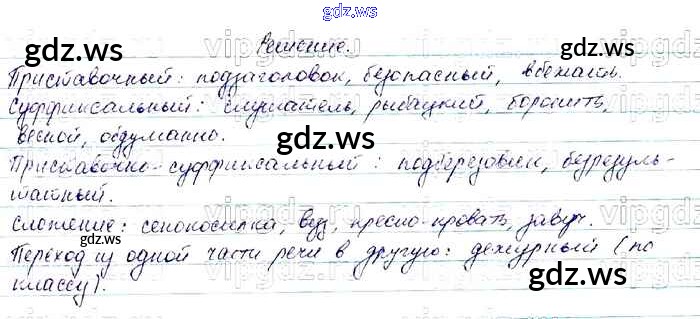 gdz.ws
Решение.
Приставочный: подзаголовок, безопасный, вбежать.
Суффиксальный: слушатель, рыбацкий, боронить,
весной, обдуманно.
Приставочно-суффиксальный: подберезовик, безрезуль-
татный.
Сложение: сенокосилка, вуз, пресно-кровать, завуч.
Переход из одной части речи в другую: дежурный (по
классу).